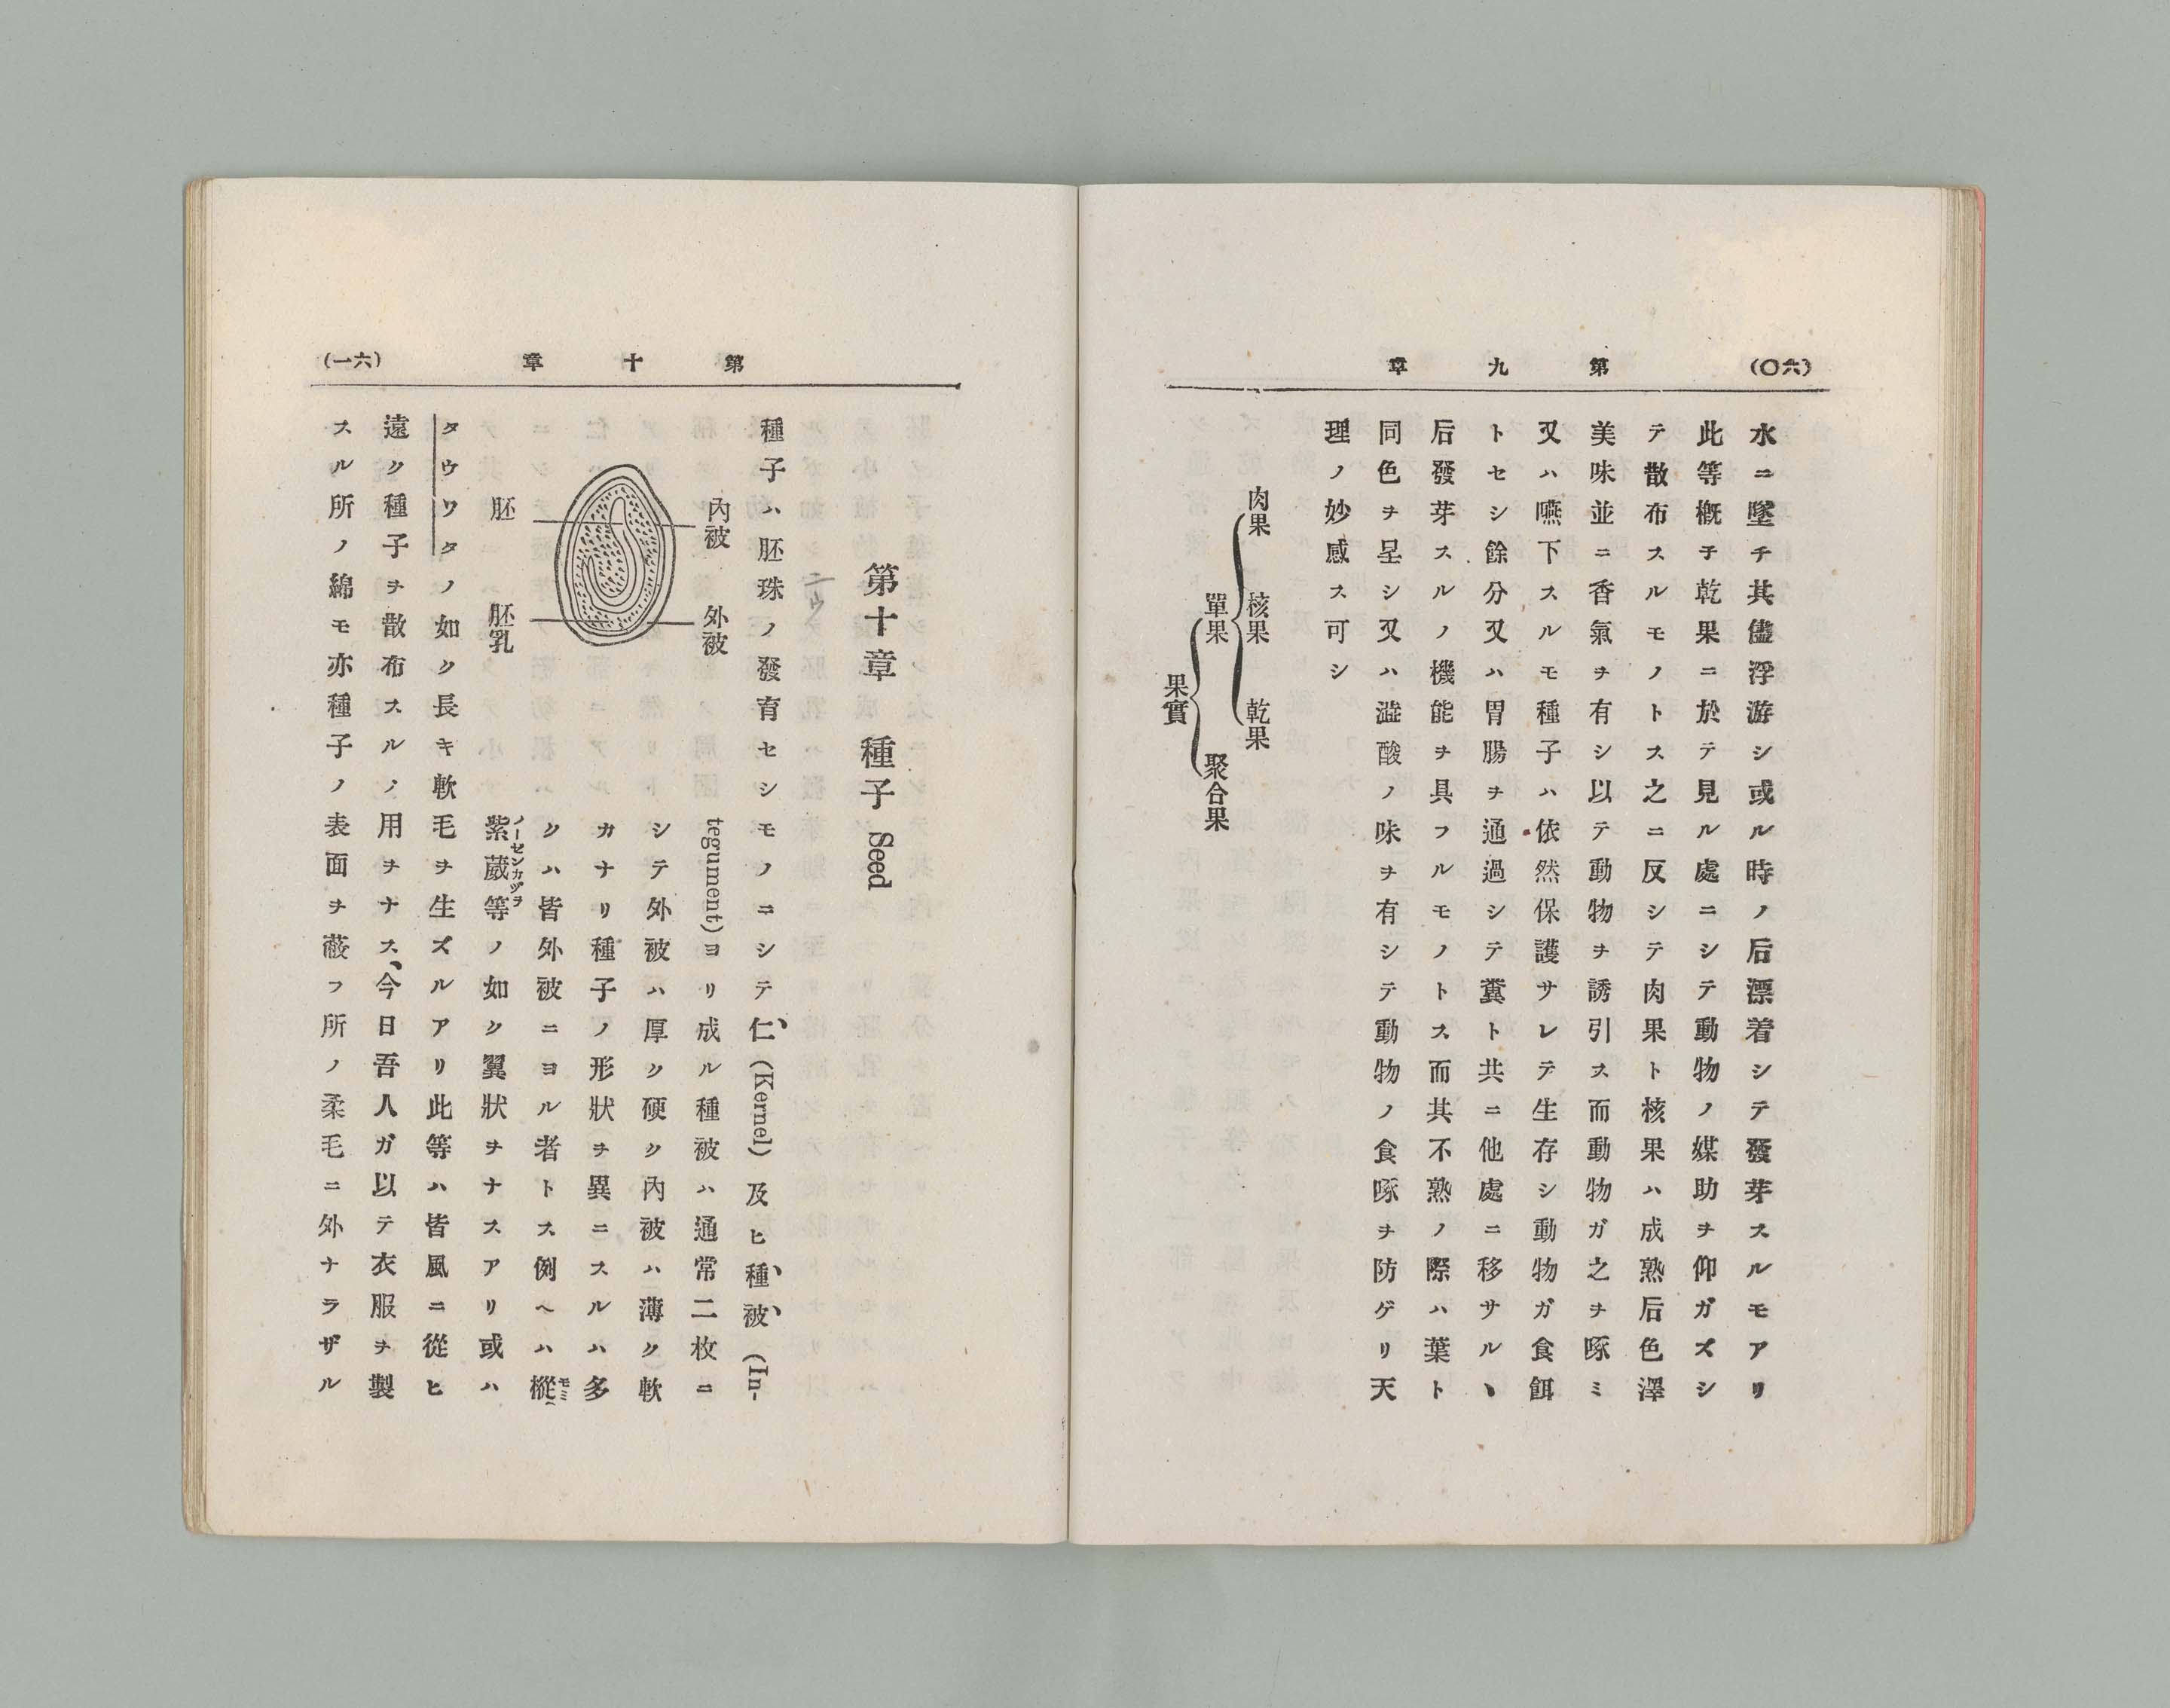 (六〇)
第九章
水ニ墜チ其儘浮游シ或ル時ノ后漂着シテ發芽スルモアリ
此等概子乾果ニ於テ見ル處ニシテ動物ノ媒助ヲ仰ガズシ
テ散布スルモノトス之ニ反シテ肉果ト核果ハ成熟后色澤
美味並ニ香氣ヲ有シ以テ動物ヲ誘引ス而動物ガ之ヲ啄ミ
又ハ嚥下スルモ種子ハ依然保護サレテ生存シ動物ガ食餌
トセシ餘分又ハ胃腸ヲ通過シテ糞ト共ニ他處ニ移サルヽ
后發芽スルノ機能ヲ具フルモノトス而其不熟ノ際ハ葉ト
同色ヲ呈シ又ハ澁酸ノ味ヲ有シテ動物ノ食啄ヲ防ゲリ天
理ノ妙感ス可シ
肉果
核果
乾果
單果
聚合果
果實
第十章
(六一)
第十章 種子 Seed
種子ハ胚珠ノ發育セシモノニシテ仁(Kernel)及ヒ種被(In-
tegument)ヨリ成ル種被ハ通常二枚ニ
シテ外被ハ厚ク硬ク內被ハ薄ク軟
カナリ種子ノ形狀ヲ異ニスルハ多
クハ皆外被ニヨル者トス例ヘハ樅
モミ
紫葳等ノ如ク翼狀ヲナスアリ或ハ
ノーゼンカヅラ
內被
外被
胚
胚乳
タウワタノ如ク長キ軟毛ヲ生ズルアリ此等ハ皆風ニ從ヒ
遠ク種子ヲ散布スルノ用ヲナス、今日吾人ガ以テ衣服ヲ製
スル所ノ綿モ亦種子ノ表面ヲ蔽フ所ノ柔毛ニ外ナラザル